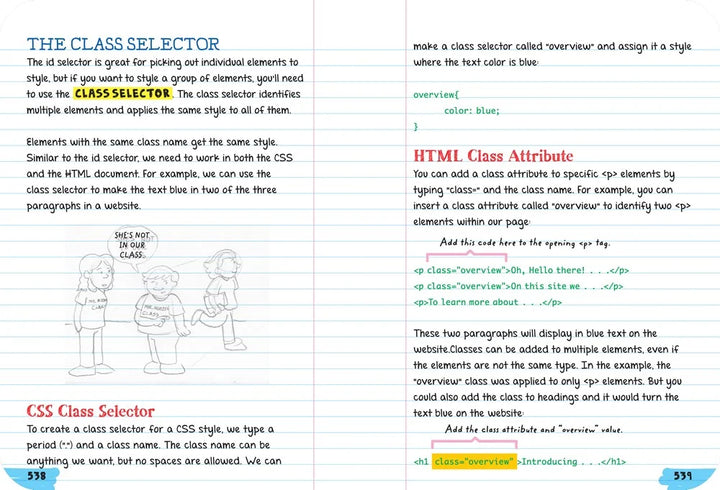 THE CLASS SELECTOR
The id selector is great for picking out individual elements to
style, but if you want to style a group of elements, you'll need
to use the CLASS SELECTOR. The class selector identifies
multiple elements and applies the same style to all of them.
Elements with the same class name get the same style.
Similar to the id selector, we need to work in both the CSS
and the HTML document. For example, we can use the
class selector to make the text blue in two of the three
paragraphs in a website.
SHE'S NOT
IN OUR
CLASS..
CLASS
CSS Class Selector
To create a class selector for a CSS style, we type a
period (".") and a class name. The class name can be
anything we want, but no spaces are allowed. We can
538
make a class selector called "overview" and assign it a style
where the text color is blue:
overview{
color: blue;
}
HTML Class Attribute
You can add a class attribute to specific <p> elements by
typing "class=" and the class name. For example, you can
insert a class attribute called "overview" to identify two <p>
elements within our page:
Add this code here to the opening <p> tag.
<p class="overview">Oh, Hello there! . . .</p>
<p class="overview">On this site we . . .</p>
<p>To learn more about . . .</p>
These two paragraphs will display in blue text on the
website.Classes can be added to multiple elements, even if
the elements are not the same type. In the example, the
"overview" class was applied to only <p> elements. But you
could also add the class to headings and it would turn the
text blue on the website:
Add the class attribute and "overview" value.
<h1 class="overview" >Introducing . . .</h1>
539